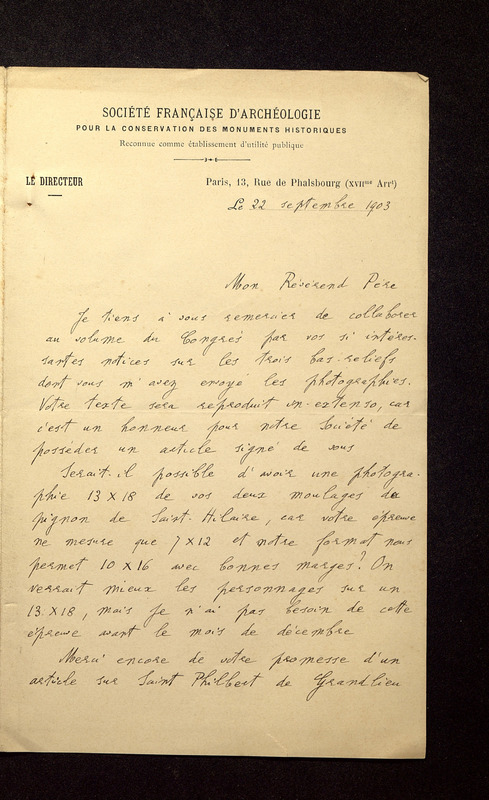 SOCIÉTÉ FRANÇAISE D'ARCHÉOLOGIE
POUR LA CONSERVATION DES MONUMENTS HISTORIQUES
Reconnue comme établissement d'utilité publique
LE DIRECTEUR
Paris, 13, Rue de Phalsbourg (XVIIme Arrt)
Le 22 septembre 1903
Mon Révérend Père
Je tiens à vous remercier de collaborer
au volume du Congrès par vos si intéres-
santes notices sur les trois bas-reliefs
dont vous m'avez envoyé les photographies.
Votre texte sera reproduit in-extenso, car
c'est un honneur pour notre Société de
posséder un article signé de vous
Serait-il possible d'avoir une photogra-
phie 13 X 18 de vos deux moulages du
pignon de Saint-Hilaire, car votre épreuve
ne mesure que 7 X 12 et notre format nous
permet 10 X 16 avec bonnes marges? On
verrait mieux les personnages sur un
13 X 18, mais je n'ai pas besoin de cette
épreuve avant le mois de décembre
Merci encore de votre promesse d'un
article sur Saint Philbert de Grandlieu